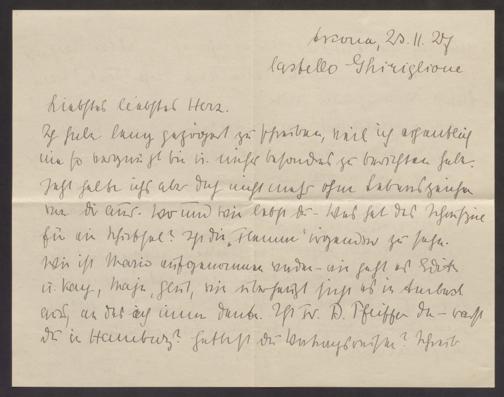 Ascona, 23.11.27
Castello Ghiriglione
Liebstes liebstes Herz.
Ich habe lang gezögert zu schreiben, weil ich eigentlich
nie so vergnügt bin u. nichts besonderes zu berichten habe.
Jetzt halte ichs aber doch nicht mehr ohne Lebenszeichen
von dir aus. Wo und wie lebst du - was hat das
für ein Schicksal? Ist die „Flamme" irgendwo zu sehn.
Wie ist Mario aufgenommen worden - wie geht es Edith
u. Kay, Maja, wie überhaupt sieht es in
aus, an das ich immer denke. Ist Dr. Pfeiffer da - warst
du in Hamburg? du Vortragsreisen? Schreib